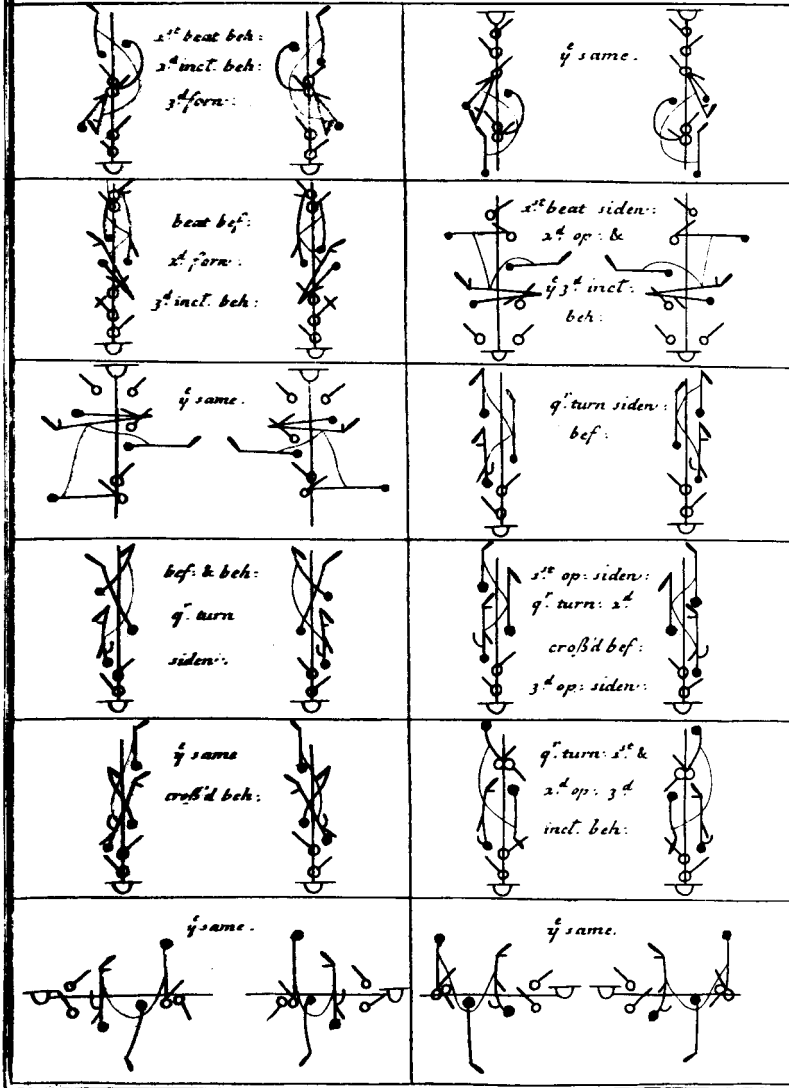 1st beat beh:
2d inct. beh:
3d forn:
ye same.
beat bef:
2d forn:
3d inct. beh:
1st beat siden:
2d op: &
ye 3d inct:
beh:
ye same.
qr. turn siden:
bef:
bef: & beh:
qr. turn
siden:
1st op: siden:
qr. turn: 2d
croß'd bef:
3d op: siden:
ye same
croß'd beh:
qr. turn: 1st &
2d op: 3d
inct. beh:
ye same.
ye same.